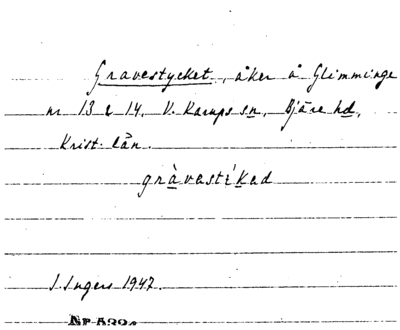 Gravestycket, åker å Glimminge
nr 13 & 14, V. Karups sn, Bjäre hd,
Krist. län.
gràvastíkad
I. Ingers 1947.